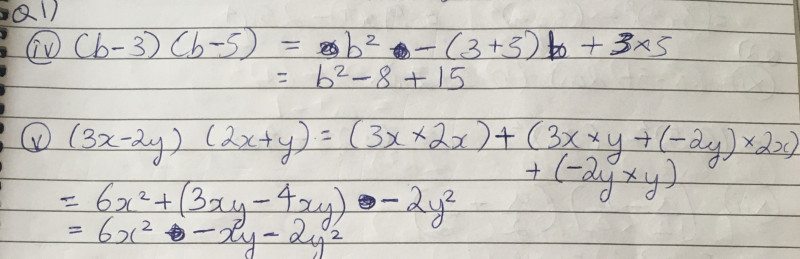 Q1)
iv) (b-3) (b-5) = b² - (3+5)b + 3×5
= b² - 8 + 15
v) (3x-2y) (2x+y) = (3x×2x) + (3x×y + (-2y)×2x)
+ (-2y×y)
= 6x² + (3xy - 4xy) - 2y²
= 6x² - xy - 2y²